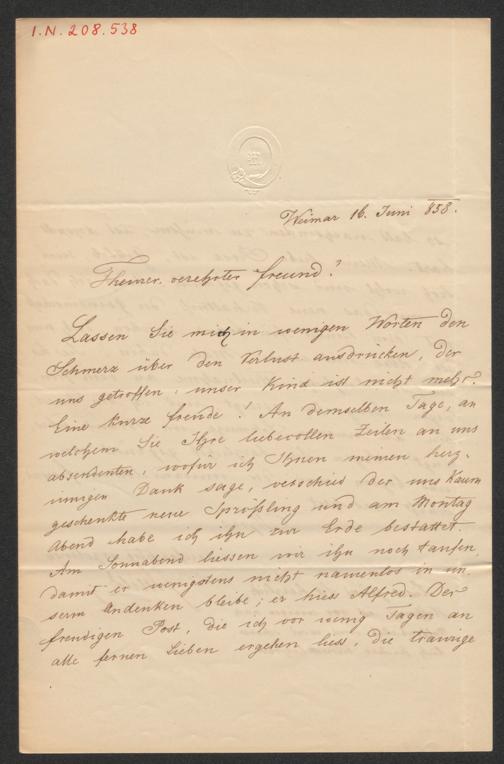 I.N. 208.538
Weimar 16. Juni 858.
Theurer, verehrter Freund!
Lassen Sie mich in wenigen Worten den
Schmerz über den Verlust ausdrücken, der
uns getroffen, unser Kind ist nicht mehr.
Eine kurze Freude! An demselben Tage, an
welchem Sie Ihre liebevollen Zeilen an uns
absendenten, wofür ich Ihnen meinen herz-
innigen Dank sage, verschied der uns kaum
geschenkte neue Sprößling und am Montag
Abend habe ich ihn zur Erde bestattet.
Am Sonnabend liessen wir ihn noch taufen,
damit er wenigstens nicht namenlos in un-
serm Andenken bleibe; er hiess Alfred. Der
freudigen Post, die ich vor wenig Tagen an
alle fernen Lieben ergehen liess, die traurige